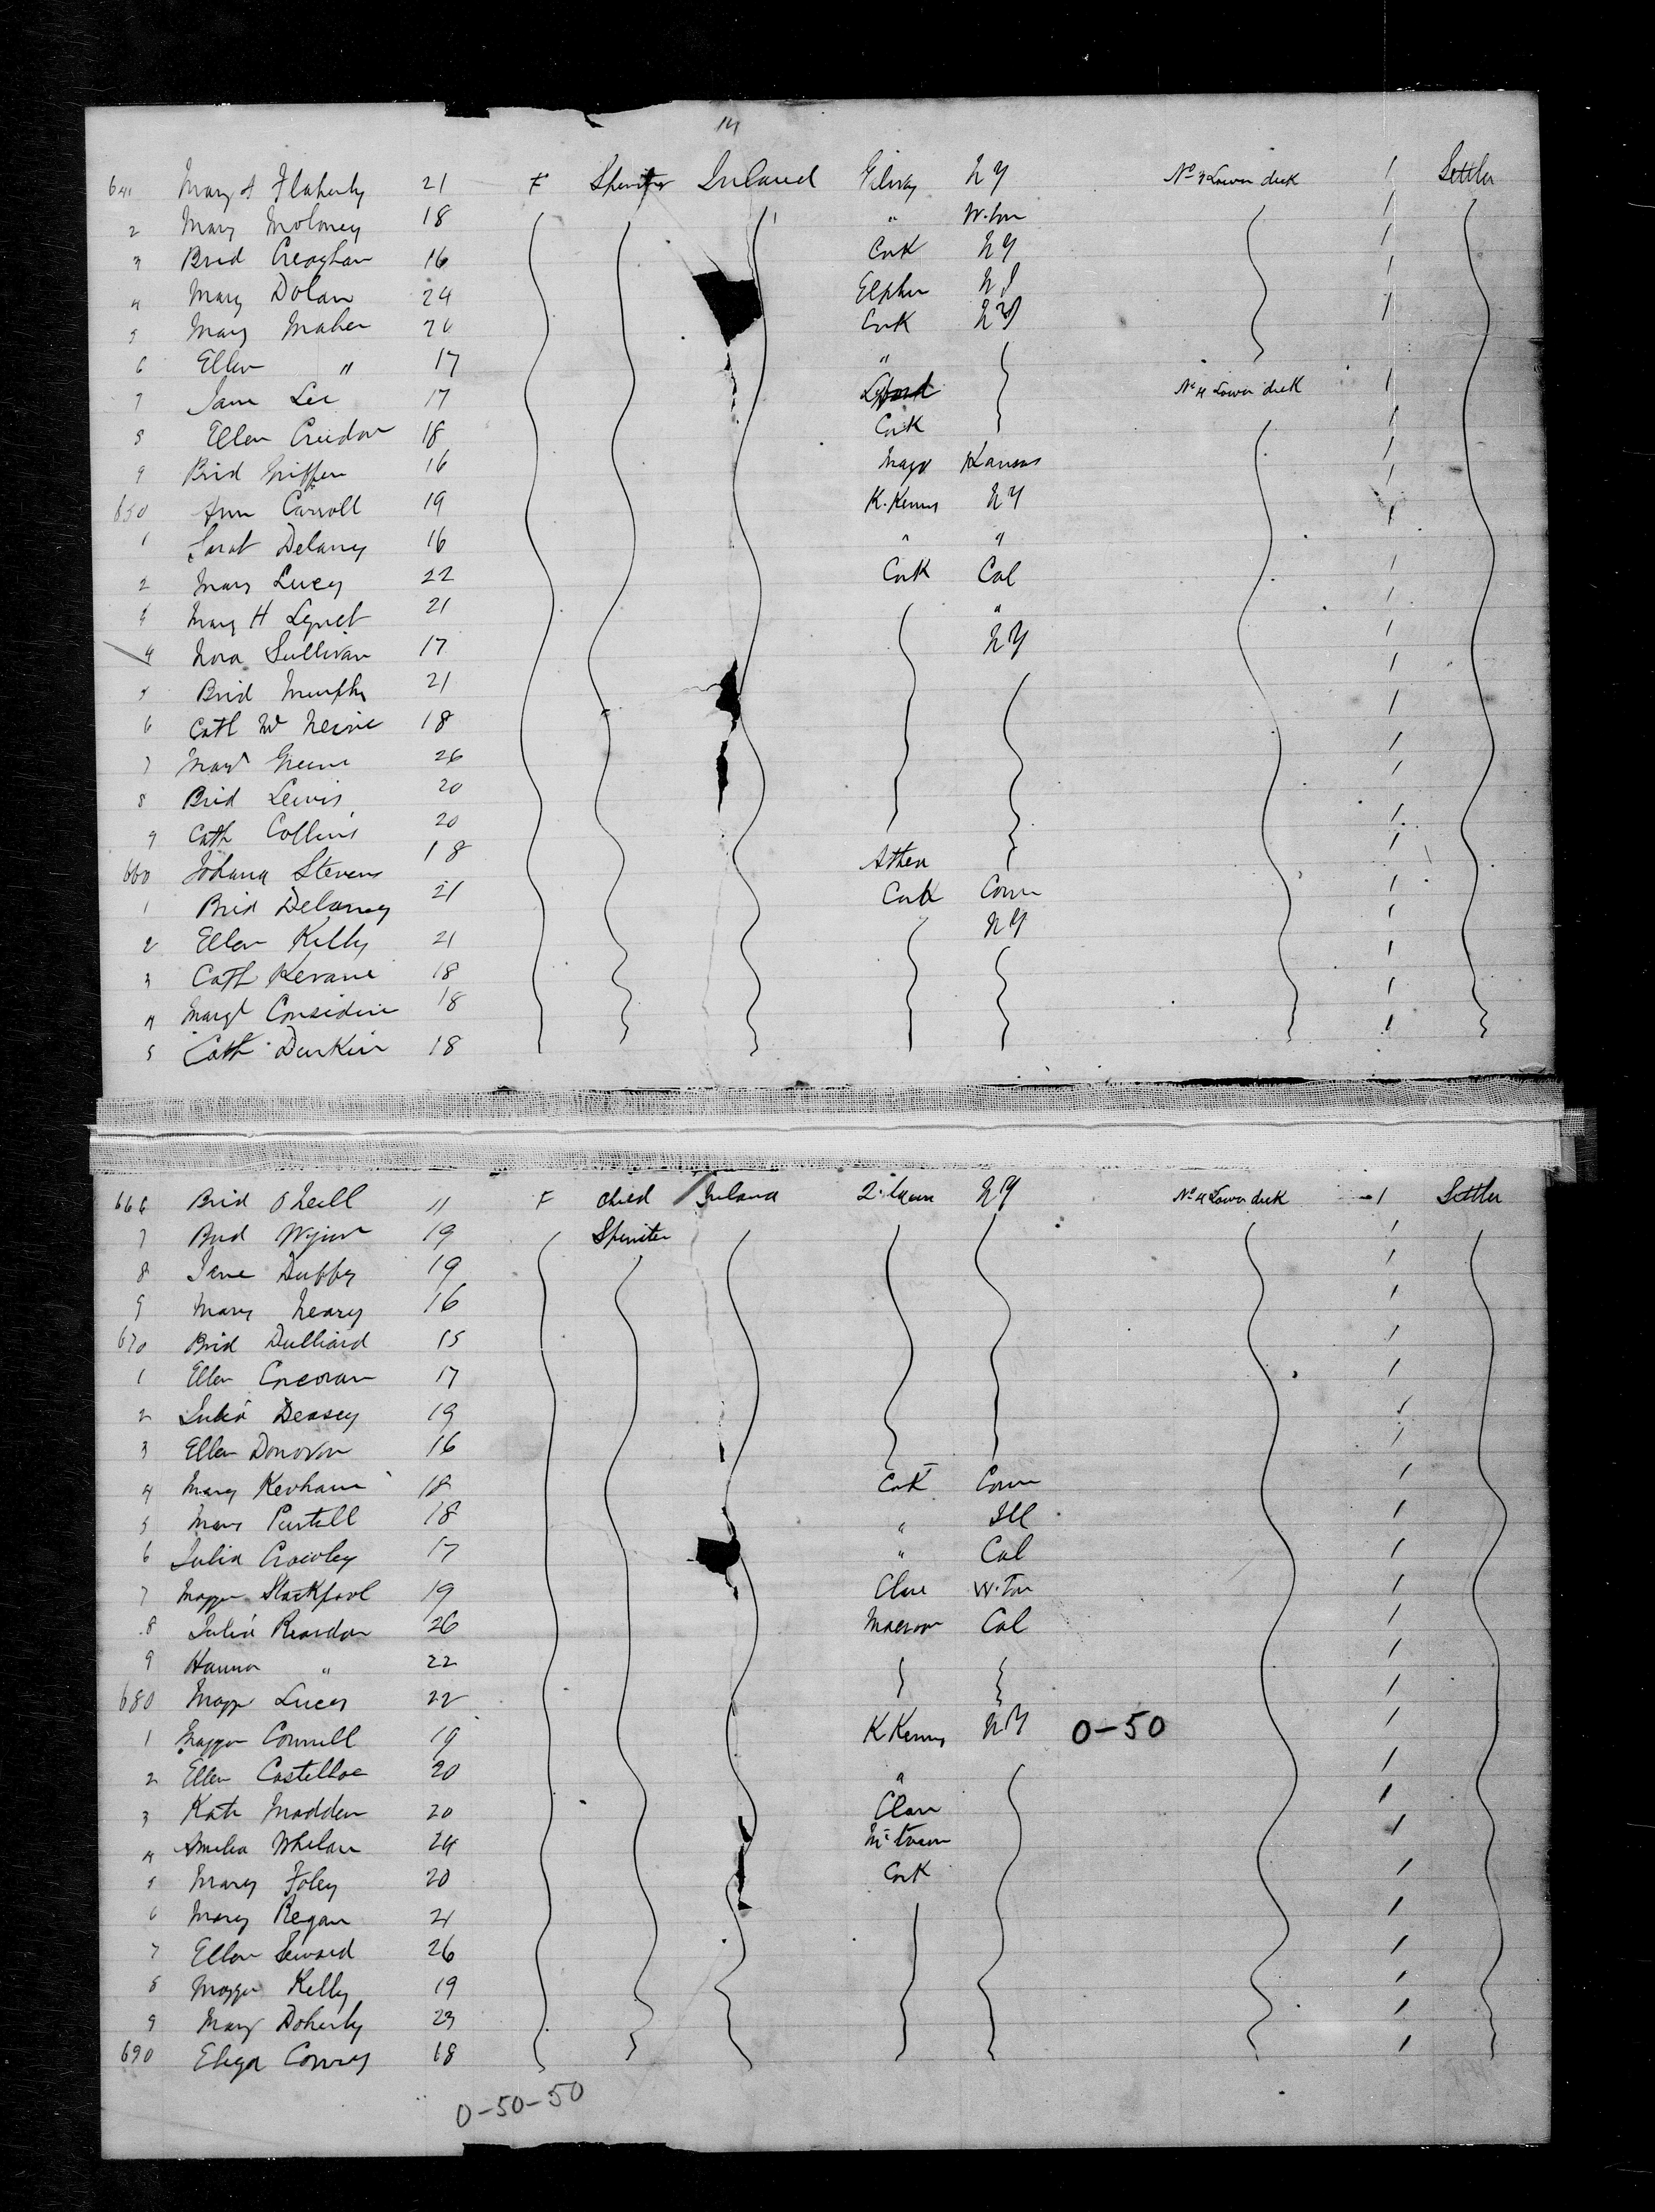 14
641 Mary A Flaherty 21 F Spinster Ireland Galway NY No 3 Lower deck 1 Settler
2 Mary Moloney 18 " W.ton 1
3 Brid Creaghan 16 Cork NY 1
4 Mary Dolan 24 Elphin NJ 1
5 Mary Maher 20 Cork NY 1
6 Ellen " 17 "
7 Jane Lee 17 No 4 Lower deck 1
8 Ellen Creedon 18 Cork 1
9 Brid Griffin 16 Mayo Kansas 1
650 Ann Carroll 19 K.Kenny NY 1
1 Sarah Delany 16 " " 1
2 Mary Lucey 22 Cork Cal 1
3 Mary H Lynch 21 " 1
4 Nora Sullivan 17 NY 1
5 Brid Murphy 21 1
6 Cath 18 1
7 Margt Greene 26 1
8 Brid Lewis 20 1
9 Cath Collins 20 1
660 Johana Stevens 18 Athea 1
1 Brid Delaney 21 Cork Conn 1
2 Ellen Kelly 21 NY 1
3 Cath Kevane 18 1
4 Margt Considine 18 1
5 Cath Durkin 18 1
666 Brid O'Neill 11 F Child Ireland Q.town NY No 4 Lower deck 1 Settler
7 Brid 19 Spinster 1
8 Jane Duffy 19 1
9 Mary Neary 16 1
670 Brid Dulliard 15 1
1 Ellen Corcoran 17 1
2 Julia Deasey 19 1
3 Ellen Donovan 16 1
4 Mary 18 Cork Conn 1
5 Mary Purtell 18 " Ill 1
6 Julia Crowley 17 " Cal 1
7 Maggie Stackpool 19 Clare W.ton 1
8 Julia Reardon 26 Macroom Cal 1
9 Hanna " 22 1
680 Maggie Lucey 22 1
1 Maggie Connell 19 K Kenny NY 0-50 1
2 Ellen Costelloe 20 " 1
3 Kate Madden 20 Clare 1
4 Amelia Whelan 24 1
5 Mary Foley 20 Cork 1
6 Mary Regan 21 1
7 Ellen Seward 26 1
8 Maggie Kelly 19 1
9 Mary Doherty 23 1
690 Eliza Conroy 18 1
0-50-50